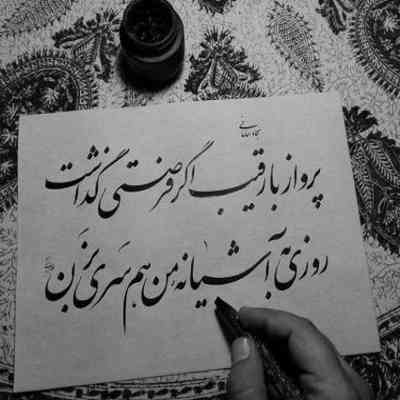 پرواز با رقیب اگر فرصتی گذاشت
روزی به آشیانه من هم سری بزن